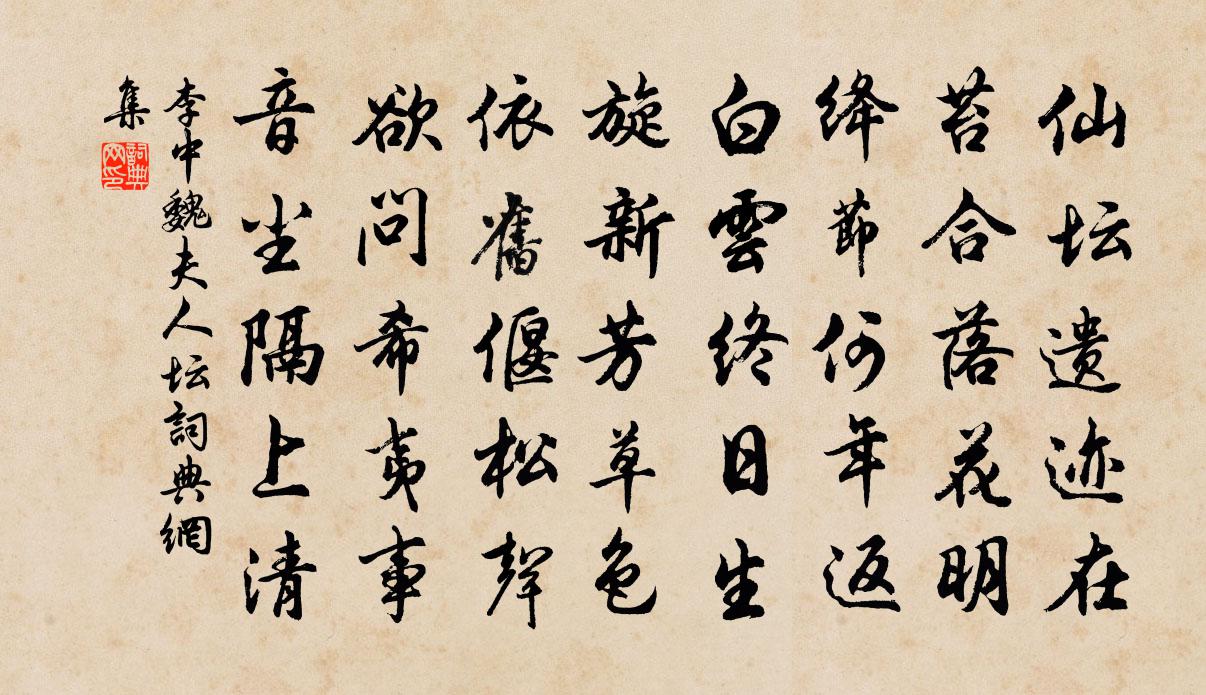 仙坛遗迹在
苔合落花明
绛節何年返
白雲终日生
旋新芳草色
依舊偃松聲
欲问希夷事
音尘隔上清
李中魏夫人坛詞典網
集
詞典
网印